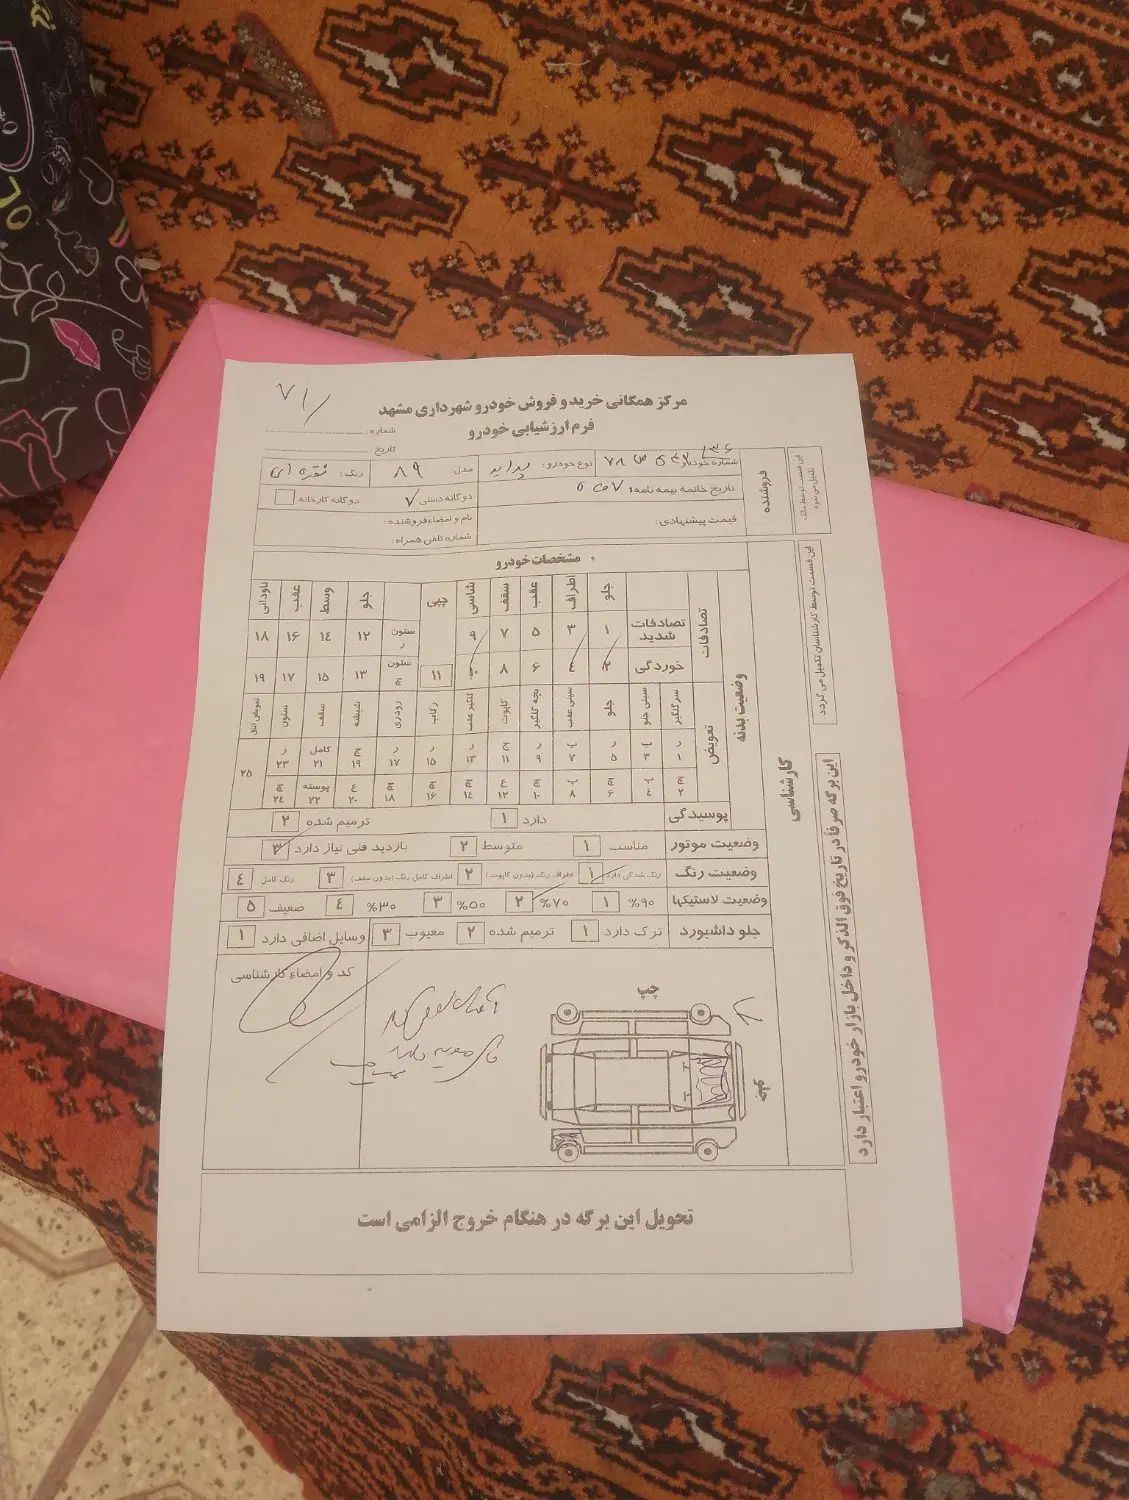 ۷۱/
مرکز همگانی خرید و فروش خودرو شهرداری مشهد
فرم ارزشیابی خودرو
شماره:
تاریخ
این قسمت توسط مالک تکمیل می شود
فروشنده
شماره خودرو: نوع خودرو: پراید مدل: ۸۹ رنگ: نقره ای
تاریخ خاتمه بیمه نامه: دوگانه دستی ✓ دوگانه کارخانه
قیمت پیشنهادی: نام و امضاء فروشنده:
شماره تلفن همراه:
این قسمت توسط کارشناسان تکمیل می گردد
کارشناسی
وضعیت بدنه
مشخصات خودرو
تصادفات
جلو اطراف عقب سقف شاسی پی جلو وسط عقب ناودانی
تصادفات شدید ۱ ۳ ۵ ۷ ۹ ستون ر ۱۲ ۱۴ ۱۶ ۱۸
خوردگی ۲ ۴ ۶ ۸ ۱۰ ۱۱ ستون چ ۱۳ ۱۵ ۱۷ ۱۹
تعویض
سرگلگیر سینی جلو جلو سینی عقب بچه گلگیر کاپوت گلگیر عقب رکاب رودری شیشه سقف ستون تعویض اتاق
ر ۱ ۳ ر ۵ ۷ ر ۹ ج ۱۱ ر ۱۳ ر ۱۵ ر ۱۷ ج ۱۹ کامل ۲۱ ر ۲۳ ۲۵
چ ۲ ۴ چ ۶ ۸ چ ۱۰ ع ۱۲ چ ۱۴ چ ۱۶ چ ۱۸ ع ۲۰ پوسته ۲۲ چ ۲۴
پوسیدگی دارد ۱ ترمیم شده ۲
وضعیت موتور مناسب ۱ متوسط ۲ بازدید فنی نیاز دارد ۳
وضعیت رنگ رنگ شدگی دارد ۱ اطراف رنگ (بدون کاپوت) ۲ اطراف کامل رنگ (بدون سقف) ۳ رنگ کامل ۴
وضعیت لاستیکها ۹۰% ۱ ۷۰% ۲ ۵۰% ۳ ۳۰% ۴ ضعیف ۵
جلو داشبورد ترک دارد ۱ ترمیم شده ۲ معیوب ۳ وسایل اضافی دارد ۱
کد و امضاء کارشناسی
چپ
این برگه صرفاً در تاریخ فوق الذکر و داخل بازار خودرو اعتبار دارد
تحویل این برگه در هنگام خروج الزامی است